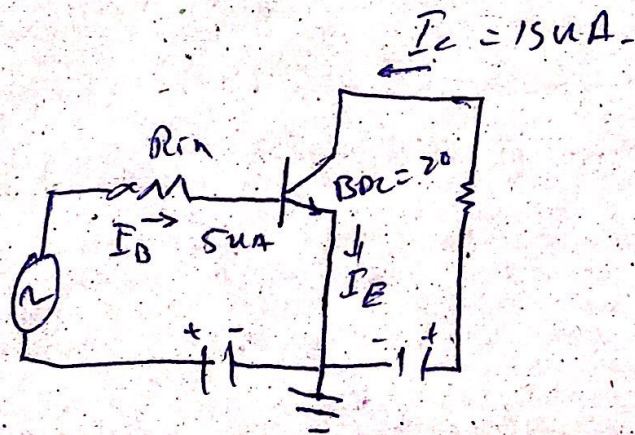 Ic = 15uA
Rin
BDC = 20
IB 5uA
IE
+ - - +